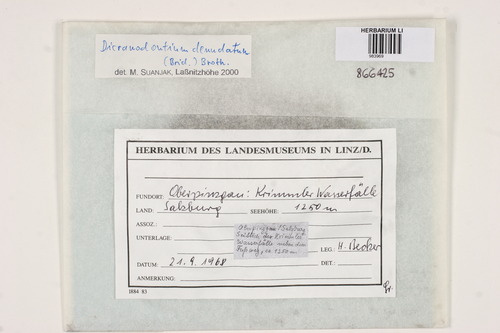 Dicranodontium denudatum
(Brid.) Broth.
det. M. SUANJAK, Laßnitzhöhe 2000
HERBARIUM LI
866425
HERBARIUM DES LANDESMUSEUMS IN LINZ/D.
FUNDORT: Oberpinzgau: Krimmler Wasserfälle
LAND: Salzburg SEEHÖHE: 1250 m
ASSOZ.:
UNTERLAGE:
Oberpinzgau/Salzburg
Wasserfälle neben dem
LEG.: H. Becker
DATUM: 21.9.1968 DET.:
ANMERKUNG:
1884 83
Gr.